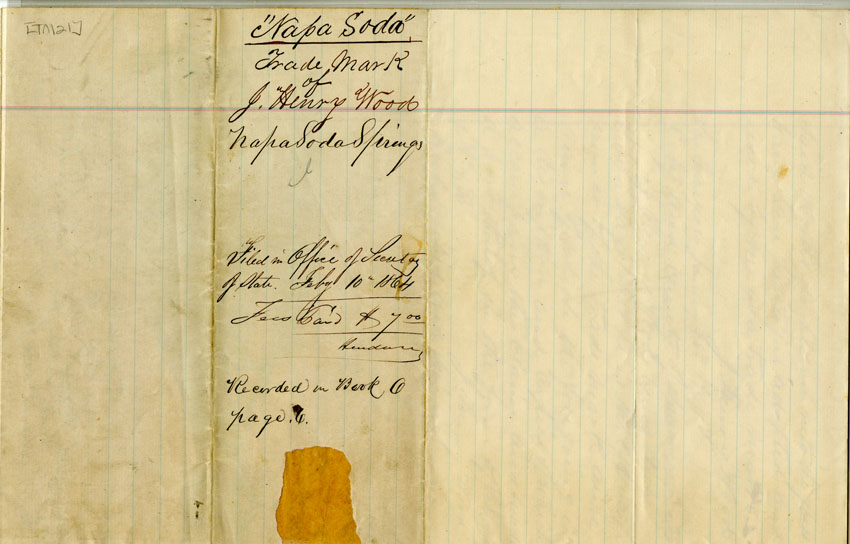 [TM121]
"Napa Soda",
Trade Mark
of
J. Henry Wood
Napa Soda Springs
Filed in Office of Secretary
of State. Feby 10th 1864
Fees Paid $ 7 00
Recorded in Book 6
page. 6.